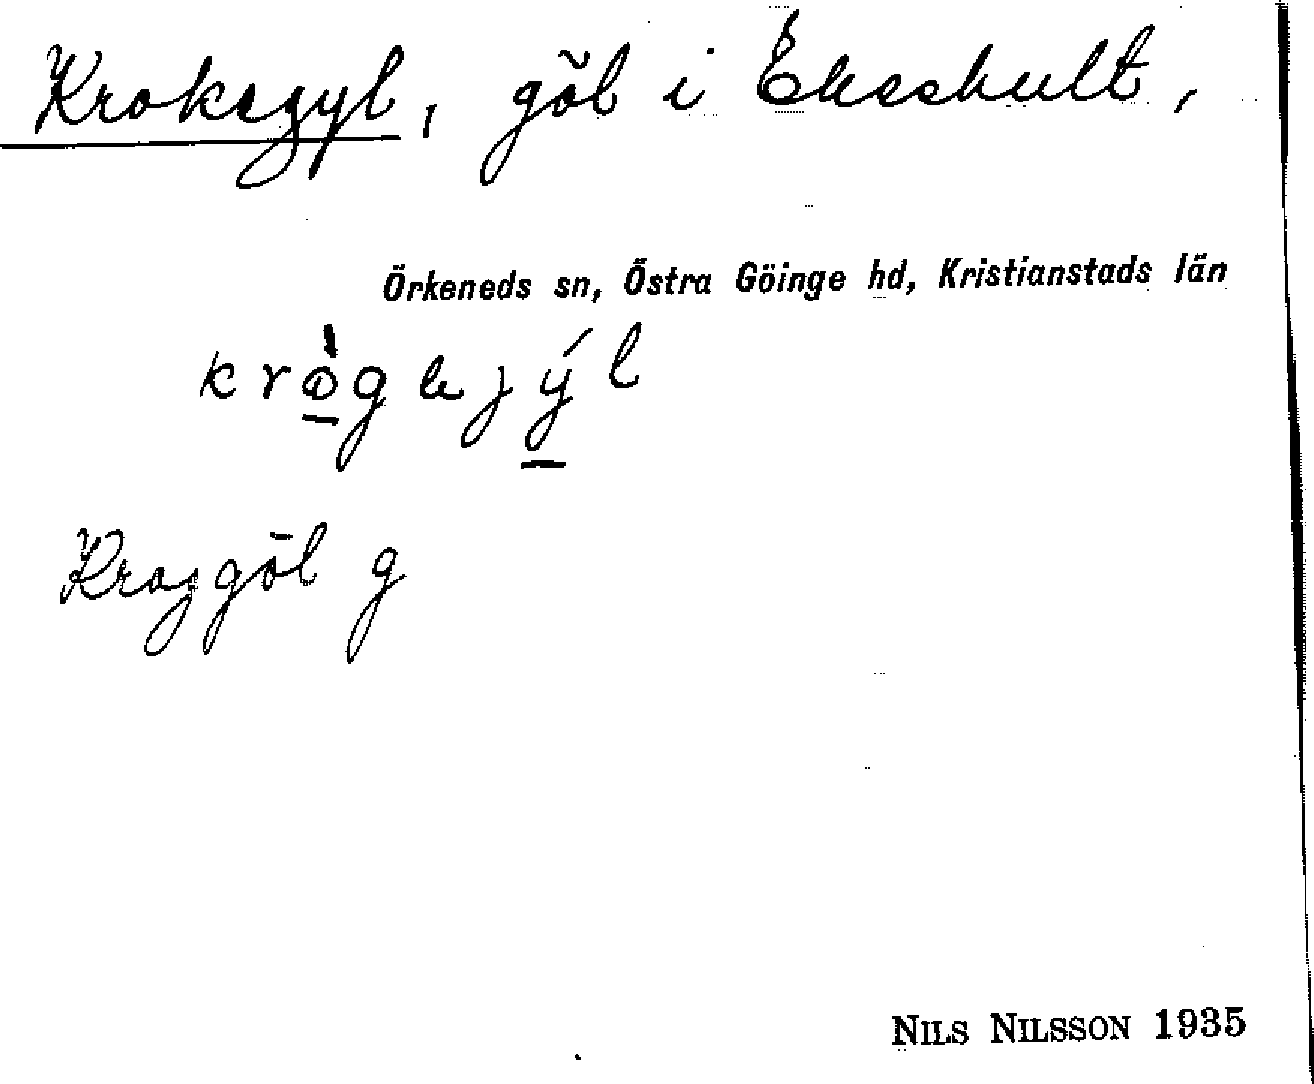 Kroksgyl, göl i Ekeshult,
Örkeneds sn, Östra Göinge hd, Kristianstads län
Kroggöl g
NILS NILSSON 1935